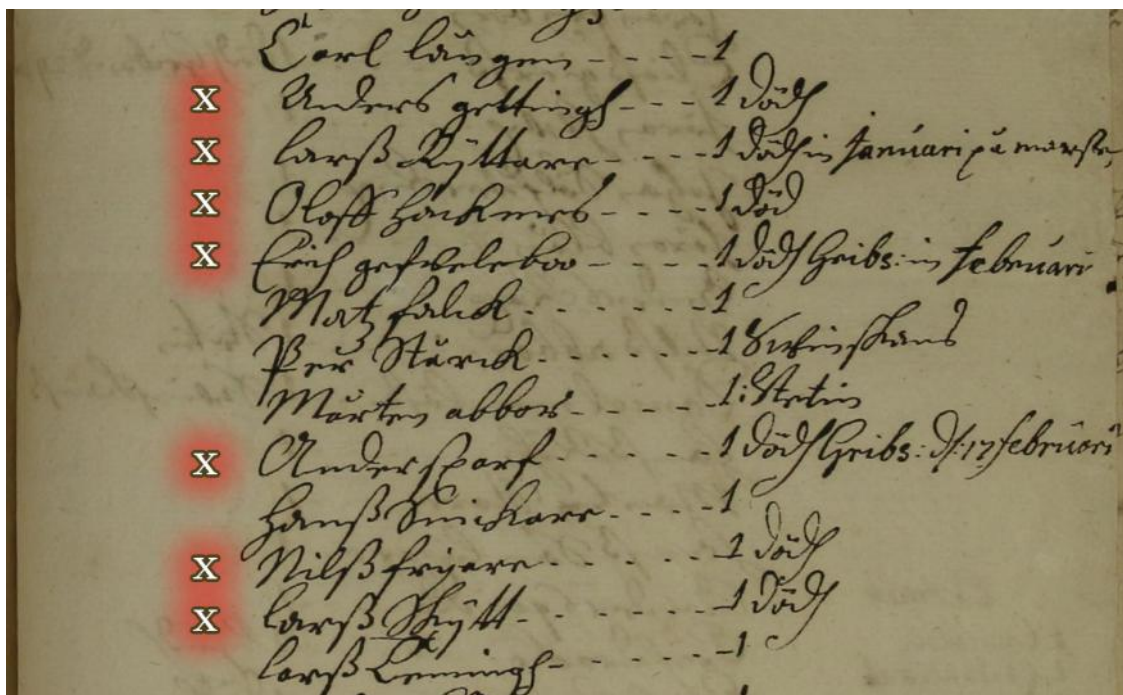 Carl lången - - - - 1
X Anders gettingh - - - 1 dödh
X larß Ryttare - - - - 1 dödh in Januari på marste,
X Oloff hackners - - - - 1 död
X Erich gefweleboo - - - - 1 dödh Gribs: in februari
Matz falck - - - - - - 1
Per Stårck - - - - - - 1 Swinskans
Mårten abbor - - - - - 1: Stetin
X Anders parf - - - - - 1 dödh Gribs: d: 17 februari
Hanß Snickare - - - - 1
X Nilß frijare - - - - - 1 dödh
X larß Skytt - - - - - - 1 dödh
larß Lemingh - - - - - 1